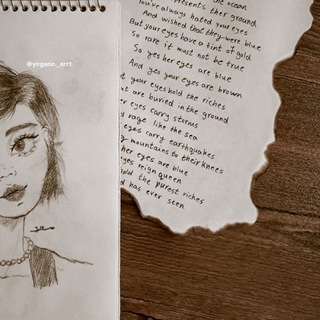 @yegane._arrt
the ocean
presents ther ground
You've always hated your eyes
And wished that they were blue
But your eyes have a tint of gold
So rare it must not be true
So yes her eyes are blue
And yes your eyes are brown
your eyes hold the riches
are buried in the ground
eyes carry storms
rage like the sea
eyes carry earthquakes
mountains to their knees
her eyes are blue
eyes reign queen
hold the purest riches
has ever seen